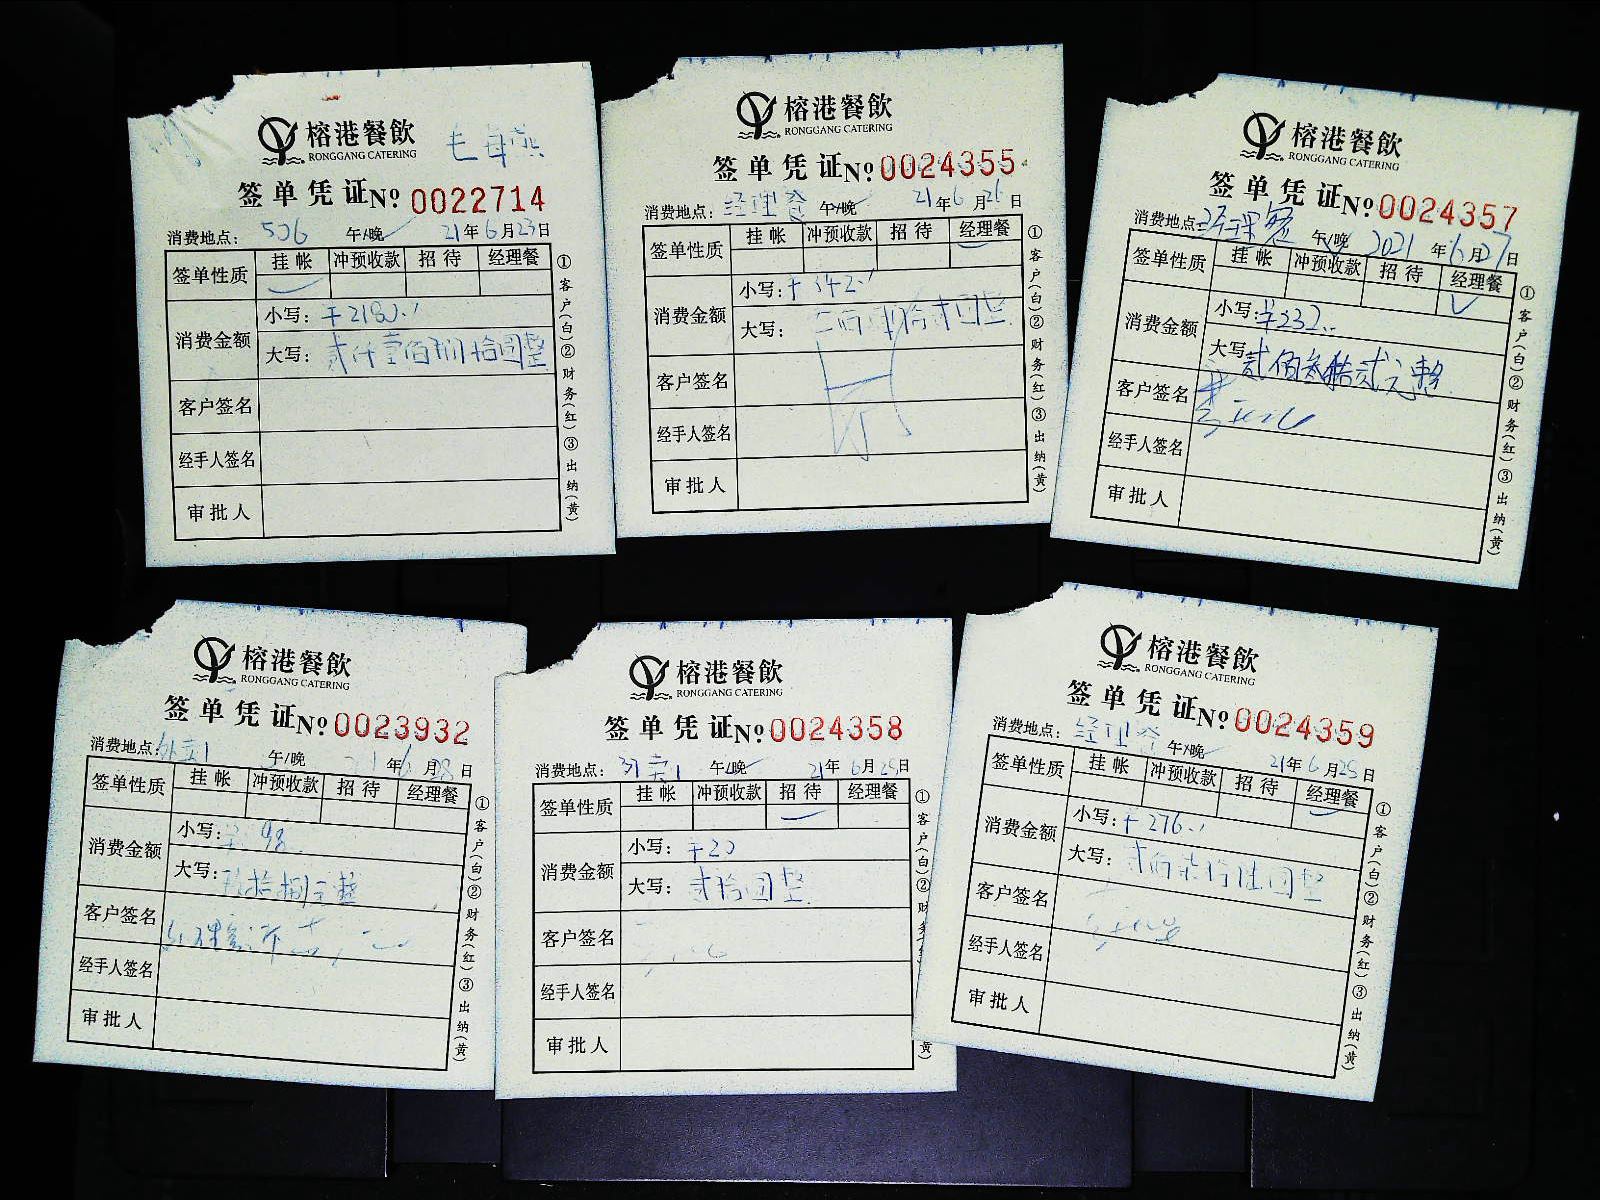 榕港餐飲
RONGGANG CATERING
签单凭证 No 0022714
消费地点: 506 午/晚 21年6月23日
签单性质 挂帐 冲预收款 招待 经理餐
消费金额 小写:
大写: 贰仟壹佰捌拾圆整
客户签名
经手人签名
审批人
①客户(白)②财务(红)③出纳(黄)
榕港餐飲
RONGGANG CATERING
签单凭证 No 0024355
消费地点: 经理餐 午/晚 21年6月26日
签单性质 挂帐 冲预收款 招待 经理餐
消费金额 小写:
大写:
客户签名
经手人签名
审批人
①客户(白)②财务(红)③出纳(黄)
榕港餐飲
RONGGANG CATERING
签单凭证 No 0024357
消费地点: 经理餐 午/晚 2021年6月27日
签单性质 挂帐 冲预收款 招待 经理餐
消费金额 小写: ¥232..
大写: 贰佰叁拾贰元整
客户签名
经手人签名
审批人
①客户(白)②财务(红)③出纳(黄)
榕港餐飲
RONGGANG CATERING
签单凭证 No 0023932
消费地点: 外卖1 午/晚 年6月28日
签单性质 挂帐 冲预收款 招待 经理餐
消费金额 小写: 98
大写: 玖拾捌元整
客户签名
经手人签名
审批人
①客户(白)②财务(红)③出纳(黄)
榕港餐飲
RONGGANG CATERING
签单凭证 No 0024358
消费地点: 外卖1 午/晚 21年6月日
签单性质 挂帐 冲预收款 招待 经理餐
消费金额 小写: ¥20
大写: 贰拾圆整
客户签名
经手人签名
审批人
①客户(白)②财务(红)③出纳(黄)
榕港餐飲
RONGGANG CATERING
签单凭证 No 0024359
消费地点: 经理餐 午/晚 21年6月日
签单性质 挂帐 冲预收款 招待 经理餐
消费金额 小写: ¥276..
大写: 贰佰柒拾陆圆整
客户签名
经手人签名
审批人
①客户(白)②财务(红)③出纳(黄)